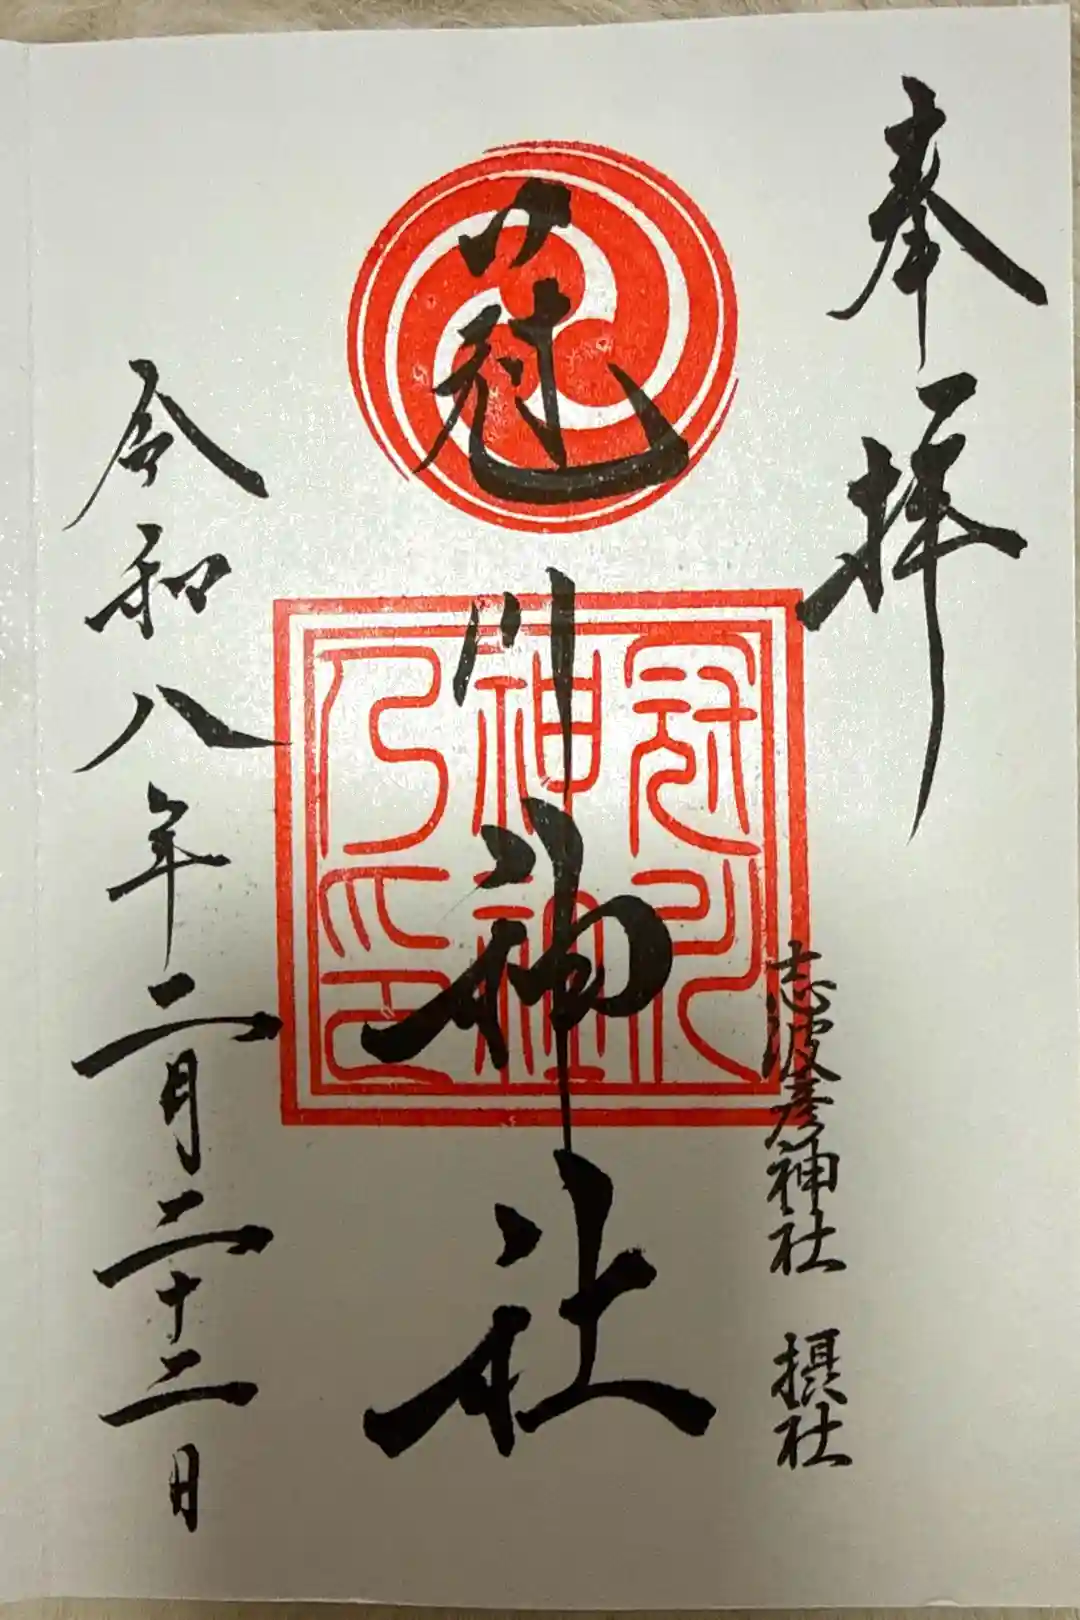 奉拝
志波彦神社 摂社
冠川神社
冠川
神社
乃印
令和八年二月二十二日